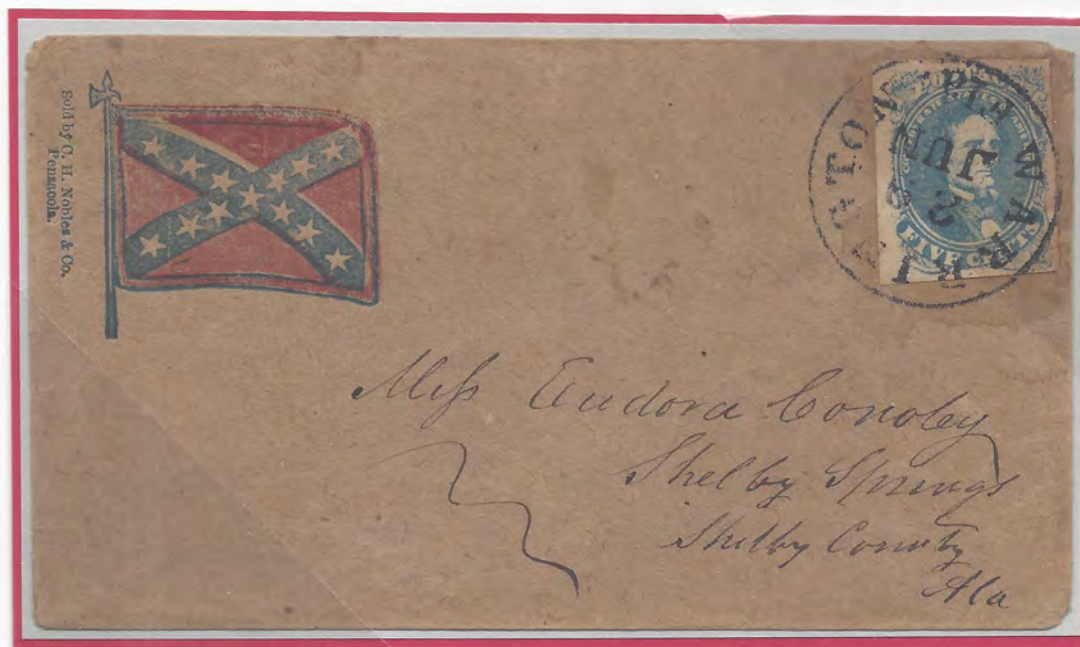 Sold by C. H. Nobles & Co.
Pensacola.
WARRINGTON
JUN
2
FIVE CENTS
Miss Eudora Conoley
Shelby Springs
Shelby County
Ala